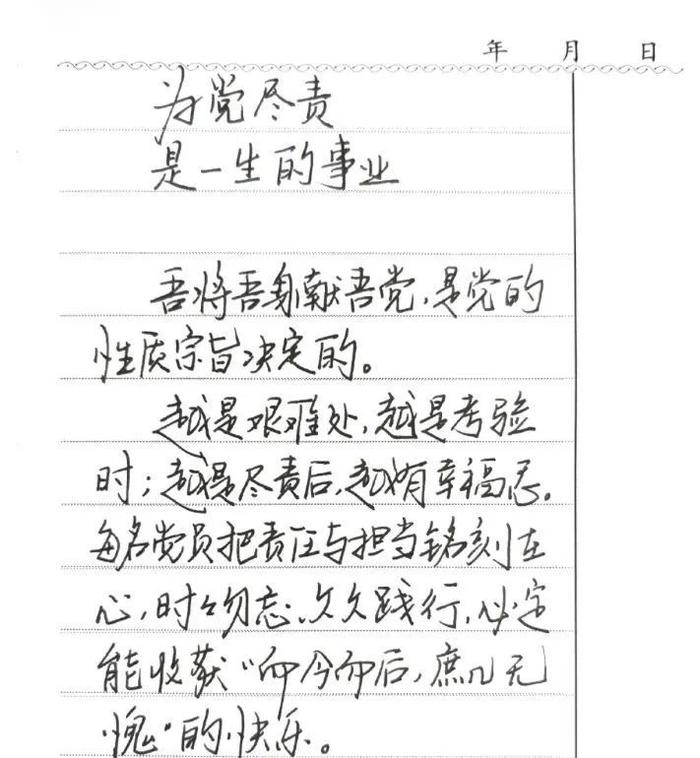 年 月 日
为党尽责
是一生的事业
吾将吾身献吾党,是党的
性质宗旨决定的。
越是艰难处,越是考验
时;越是尽责后,越有幸福感。
每名党员把责任与担当铭刻在
心,时时勿忘、久久践行,必定
能收获“而今而后,庶几无
愧”的快乐。